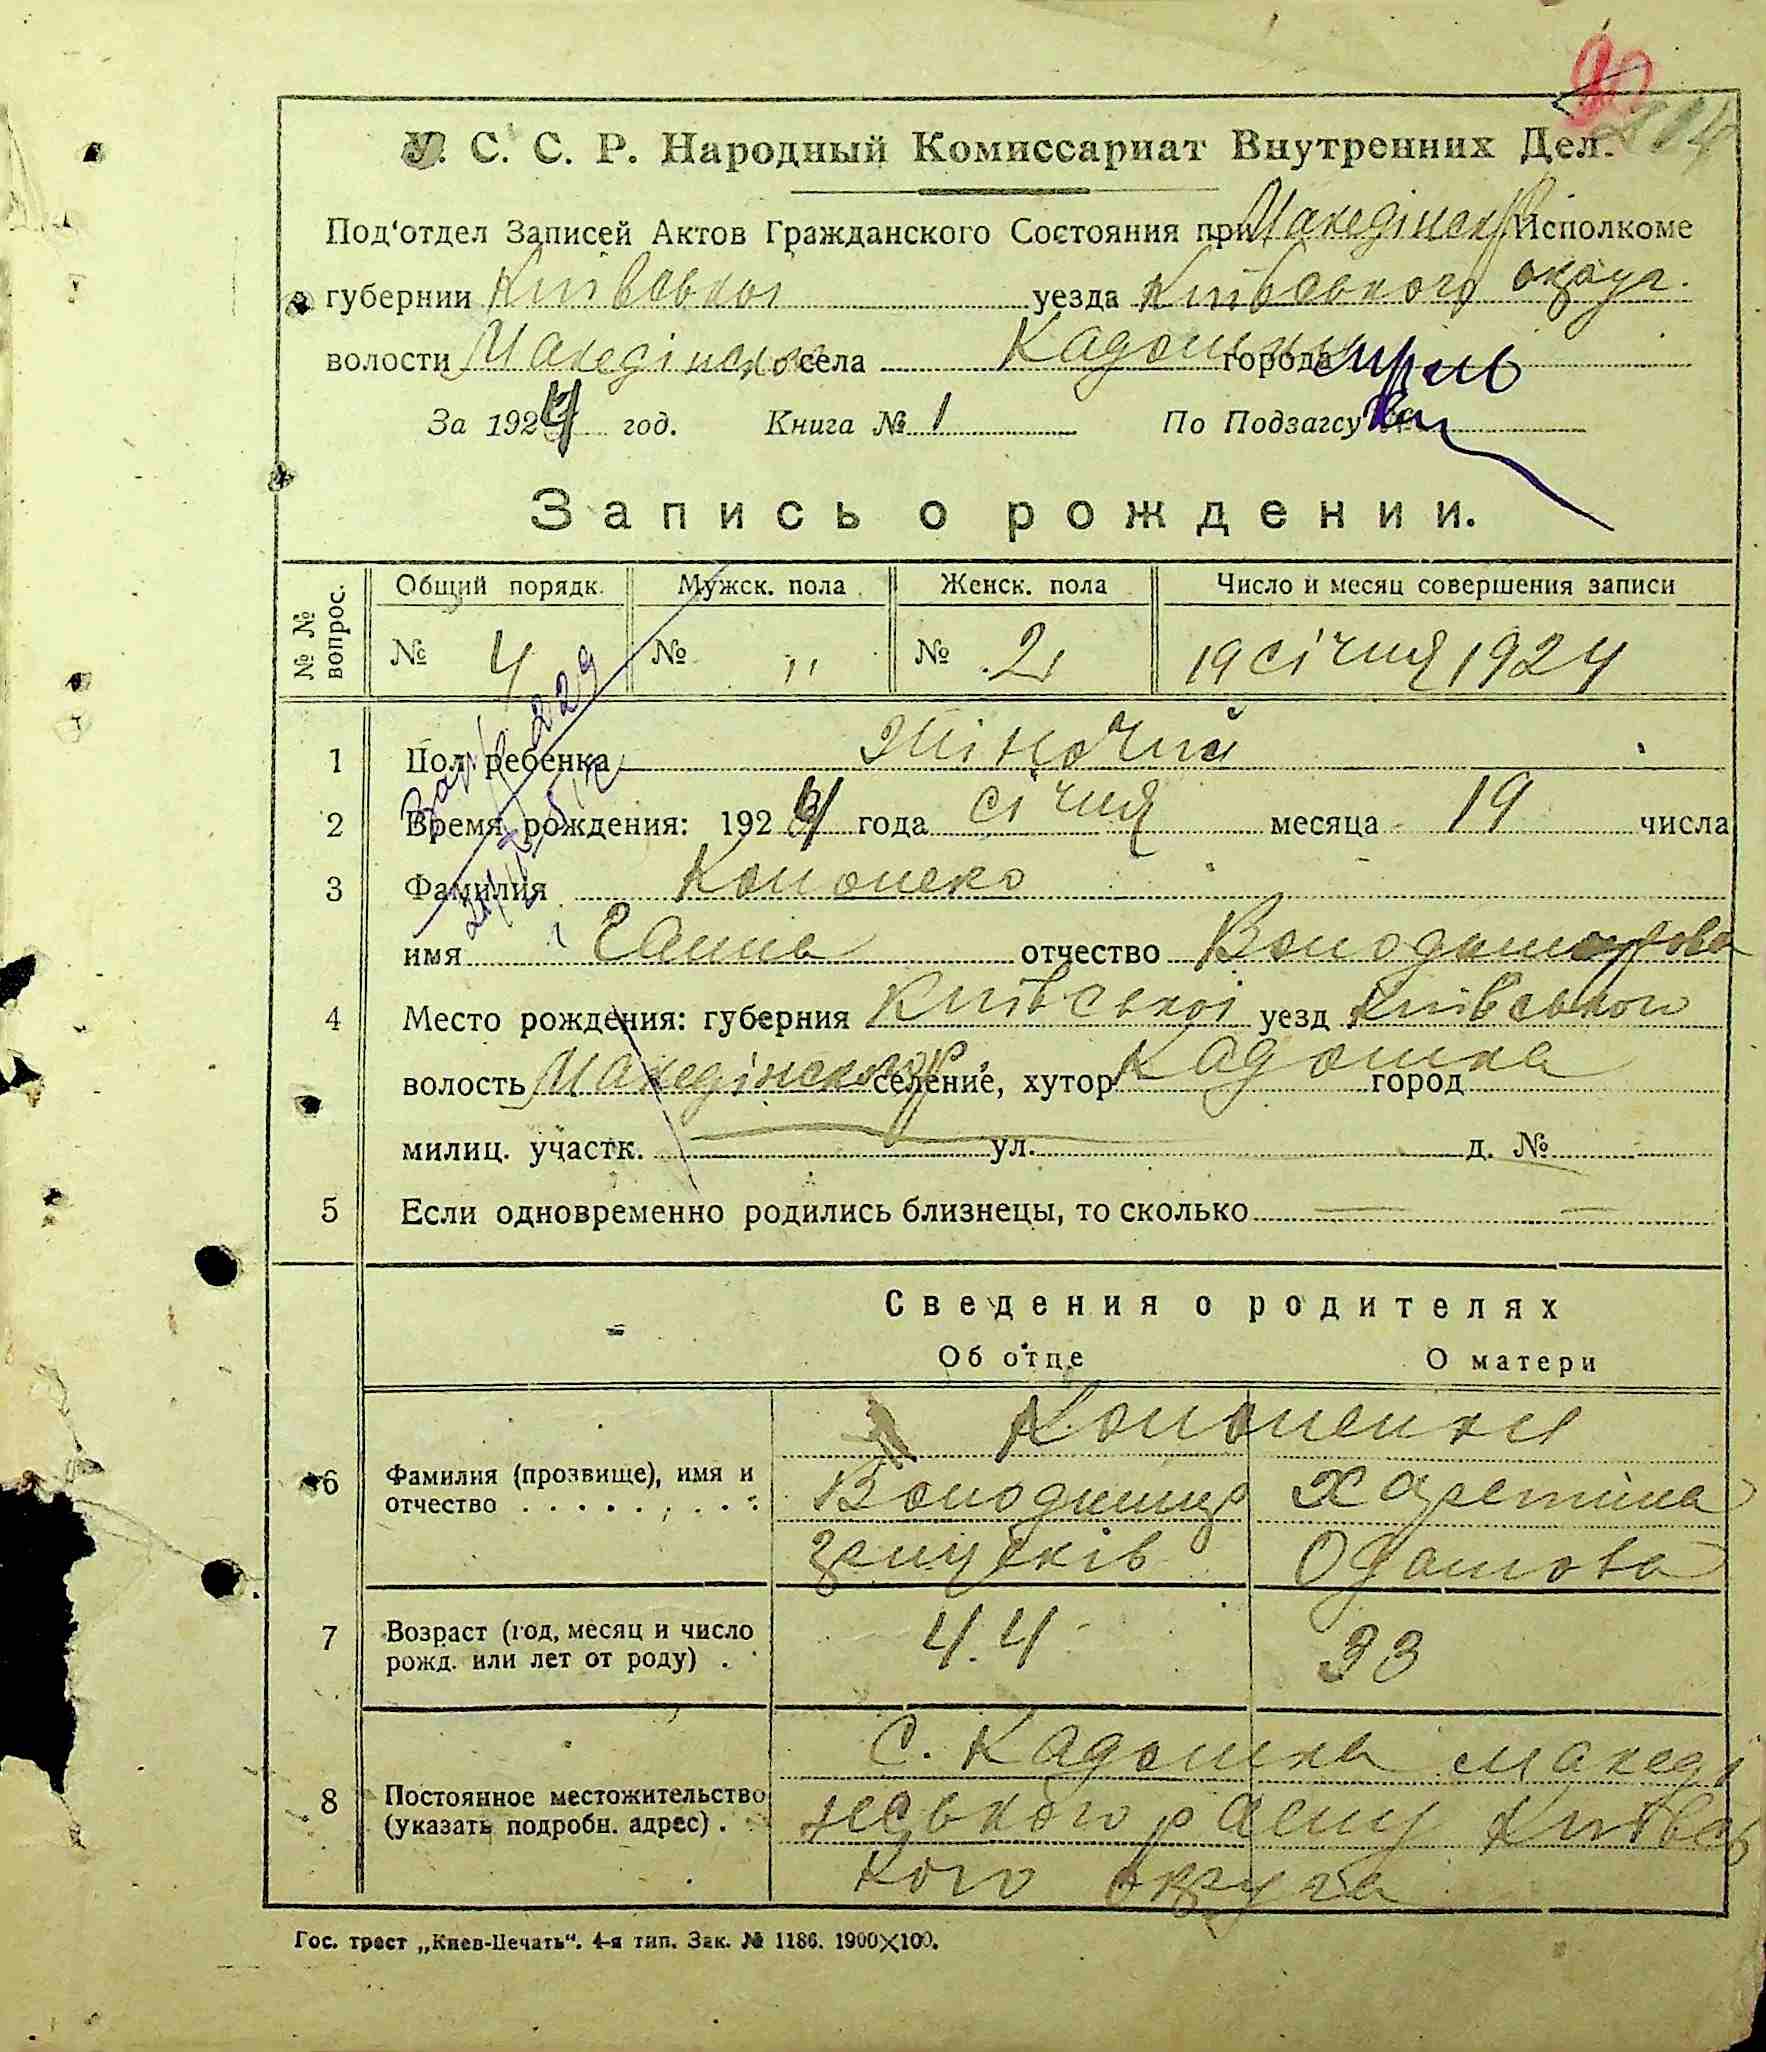 У. С. С. Р. Народный Комиссариат Внутренних Дел.
Под'отдел Записей Актов Гражданского Состояния при Македінск Исполкоме
губернии Київської уезда Київського округ.
волости Македінської села Кадомки города
За 1924 год. Книга № 1 По Подзагсу
Запись о рождении.
№ № вопрос. Общий порядк. Мужск. пола Женск. пола Число и месяц совершения записи
№ 4 № " № 2 19 січня 1924
1 Пол ребенка жіночий
2 Время рождения: 1924 года січня месяца 19 числа
3 Фамилия Кононеко
имя Ганна отчество Володимирова
4 Место рождения: губерния Київської уезд Київського
волость Македінського р. селение, хутор Кадомка город
милиц. участк. ул. д. №
5 Если одновременно родились близнецы, то сколько — —
Сведения о родителях
Об отце О матери
Кононенки
6 Фамилия (прозвище), имя и Володимир Харетина
отчество Одамова
7 Возраст (год, месяц и число 44 33
рожд. или лет от роду)
с. Кадомка Македі
8 Постоянное местожительство нського раену Київсь
(указать подробн. адрес) кого округа
Гос. трест „Киев-Печать". 4-я тип. Зак. № 1186. 1900×100.